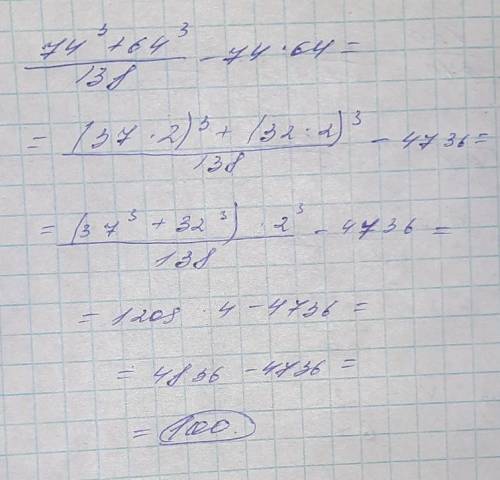 74³ + 64³
138
- 74 · 64 =
= (37 · 2)³ + (32 · 2)³
138
- 4736 =
= (37³ + 32³) · 2³
138
- 4736 =
= 1209 · 4 - 4736 =
= 4836 - 4736 =
= 100.